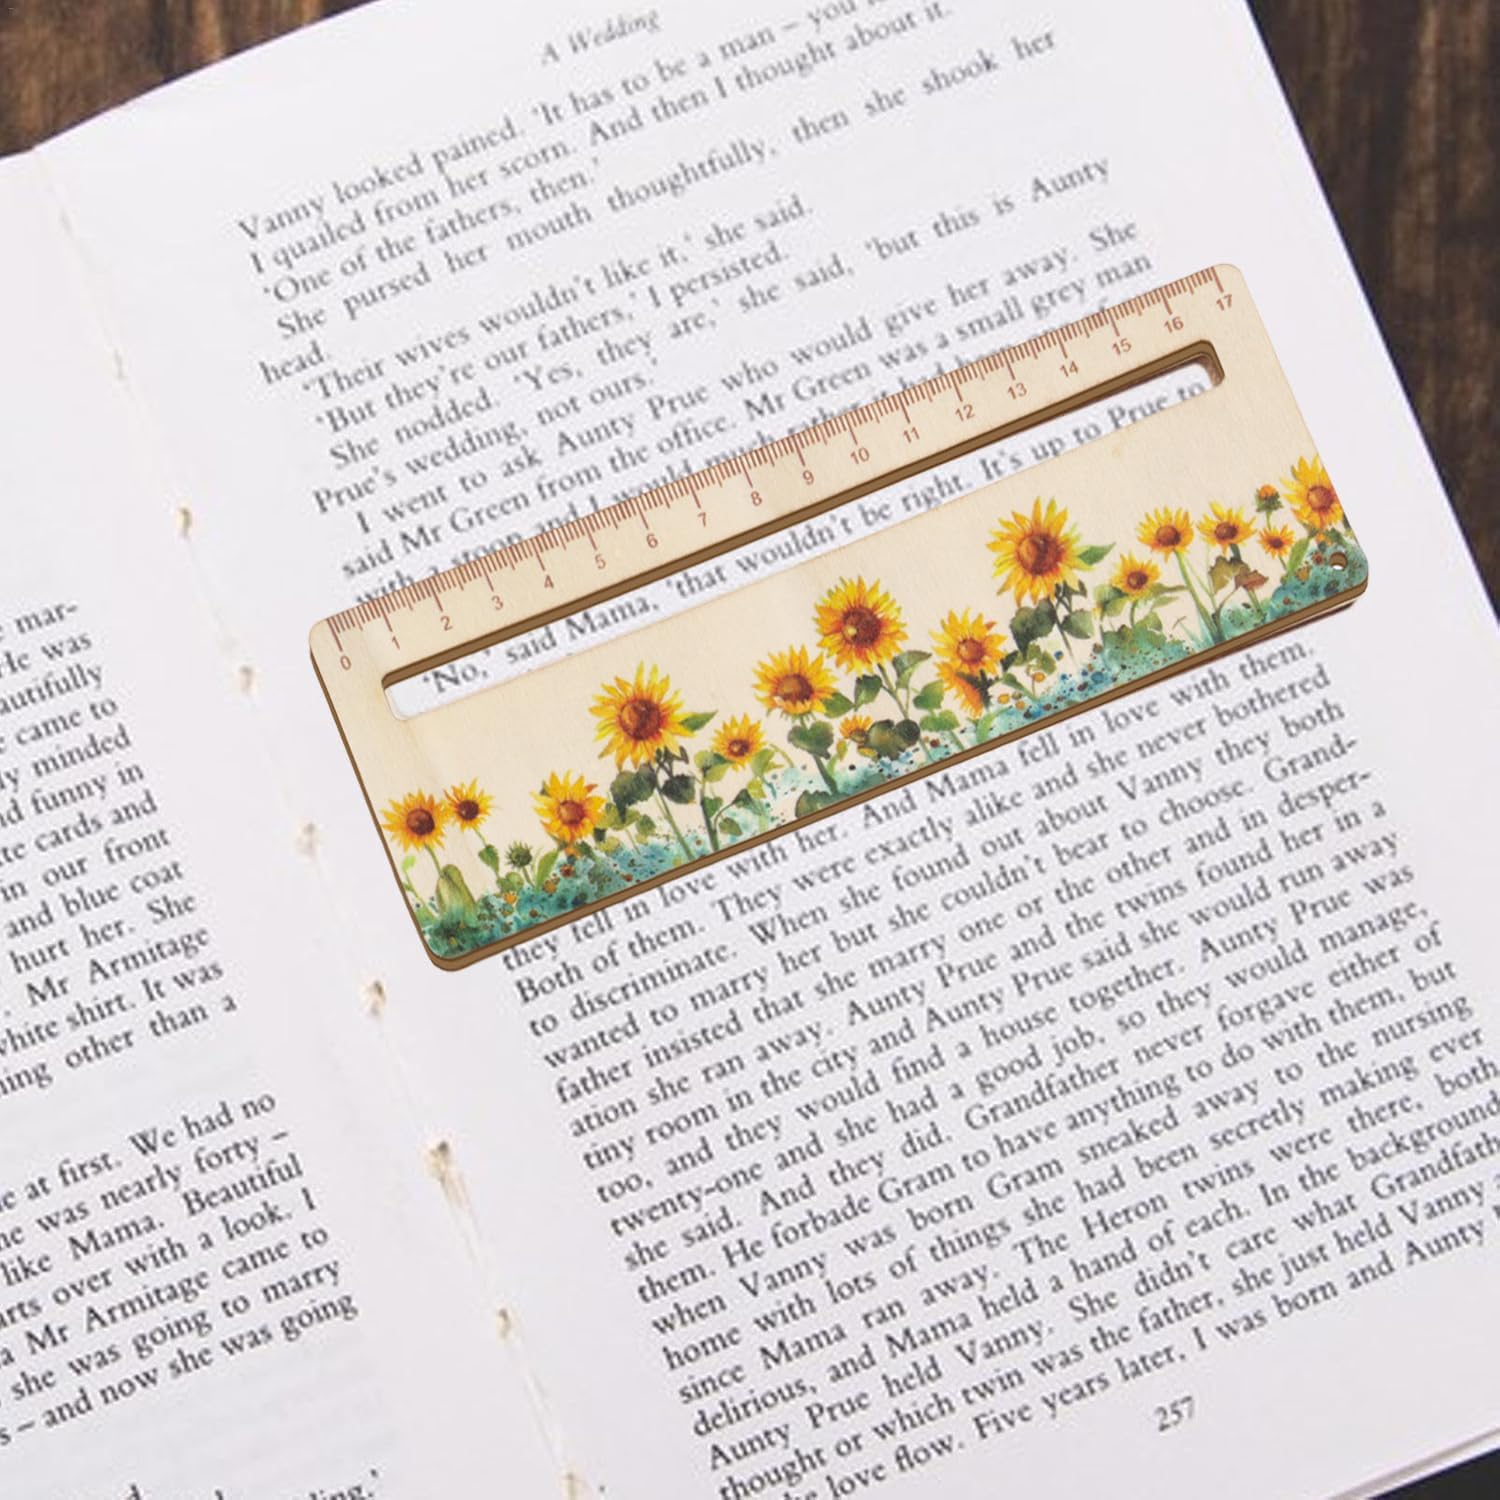 mar-
He was
autifully
came to
ly minded
d funny in
te cards and
in our front
and blue coat
hurt her. She
. Mr Armitage
white shirt. It was
ning other than a
e at first. We had no
he was nearly forty –
like Mama. Beautiful
arts over with a look. I
a Mr Armitage came to
she was going to marry
s – and now she was going
A Wedding
Vanny looked pained. 'It has to be a man – you
I quailed from her scorn. And then I thought about it.
'One of the fathers, then.'
She pursed her mouth thoughtfully, then she shook her
head.
'Their wives wouldn't like it,' she said.
'But they're our fathers,' I persisted.
She nodded. 'Yes, they are,' she said, 'but this is Aunty
Prue's wedding, not ours.'
I went to ask Aunty Prue who would give her away. She
said Mr Green from the office. Mr Green was a small grey man
with a stoop and I would much rather it had been
0 1 2 3 4 5 6 7 8 9 10 11 12 13 14 15 16 17
'No,' said Mama, 'that wouldn't be right. It's up to Prue to
love with them.
they fell in love with her. And Mama fell in
Both of them. They were exactly alike and she never bothered
to discriminate. When she found out about Vanny they both
wanted to marry her but she couldn't bear to choose. Grand-
father insisted that she marry one or the other and in desper-
ation she ran away. Aunty Prue and the twins found her in a
tiny room in the city and Aunty Prue said she would run away
too, and they would find a house together. Aunty Prue was
twenty-one and she had a good job, so they would manage,
she said. And they did. Grandfather never forgave either of
them. He forbade Gram to have anything to do with them, but
when Vanny was born Gram sneaked away to the nursing
home with lots of things she had been secretly making ever
since Mama ran away. The Heron twins were there, both
delirious, and Mama held a hand of each. In the background
Aunty Prue held Vanny. She didn't care what Grandfath
thought or which twin was the father, she just held Vanny
love flow. Five years later, I was born and Aunty
257